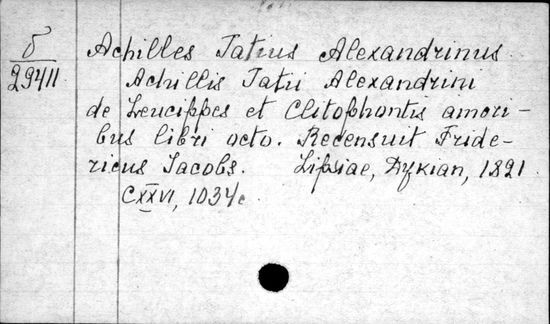 б
29411
Achilles Tatius Alexandrinus
Achillis Tatii Alexandrini
de Leucippes et Clitophontis amori-
bus libri octo. Recensuit Fride-
ricus Jacobs. Lipsiae, Dykian, 1821
CXXVI, 1034c